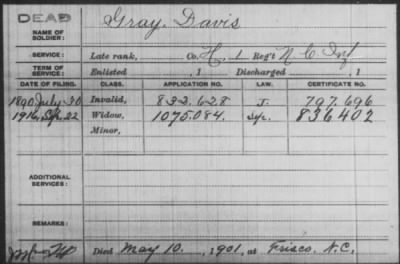 DEAD
NAME OF SOLDIER: Gray, Davis
SERVICE: Late rank, Co. H, 1 Reg't N.C. Inf
TERM OF SERVICE: Enlisted , 1 Discharged , 1
DATE OF FILING. CLASS. APPLICATION NO. LAW. CERTIFICATE NO.
1890, July 30 Invalid, 832.628 J. 797.696
1916, Sep. 22 Widow, 1075.084. 836402
Minor,
ADDITIONAL SERVICES:
REMARKS:
Died May 10, 1901, at Frisco, N.C.